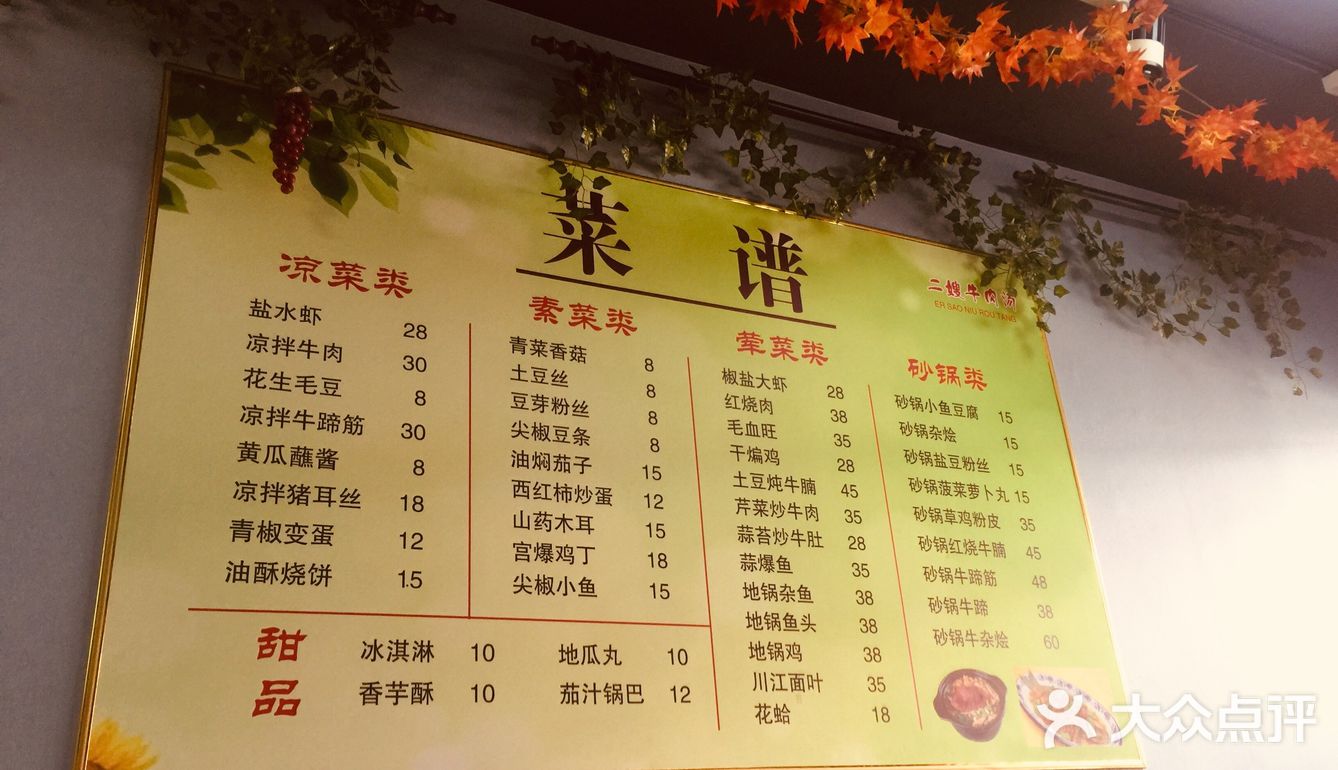 菜谱
二嫂牛肉汤
ER SAO NIU ROU TANG
凉菜类
盐水虾 28
凉拌牛肉 30
花生毛豆 8
凉拌牛蹄筋 30
黄瓜蘸酱 8
凉拌猪耳丝 18
青椒变蛋 12
油酥烧饼 1.5
素菜类
青菜香菇 8
土豆丝 8
豆芽粉丝 8
尖椒豆条 8
油焖茄子 15
西红柿炒蛋 12
山药木耳 15
宫爆鸡丁 18
尖椒小鱼 15
荤菜类
椒盐大虾 28
红烧肉 38
毛血旺 35
干煸鸡 28
土豆炖牛腩 45
芹菜炒牛肉 35
蒜苔炒牛肚 28
蒜爆鱼 35
地锅杂鱼 38
地锅鱼头 38
地锅鸡 38
川江面叶 35
花蛤 18
砂锅类
砂锅小鱼豆腐 15
砂锅杂烩 15
砂锅盐豆粉丝 15
砂锅菠菜萝卜丸 15
砂锅草鸡粉皮 35
砂锅红烧牛腩 45
砂锅牛蹄筋 48
砂锅牛蹄 38
砂锅牛杂烩 60
甜品
冰淇淋 10 地瓜丸 10
香芋酥 10 茄汁锅巴 12
大众点评